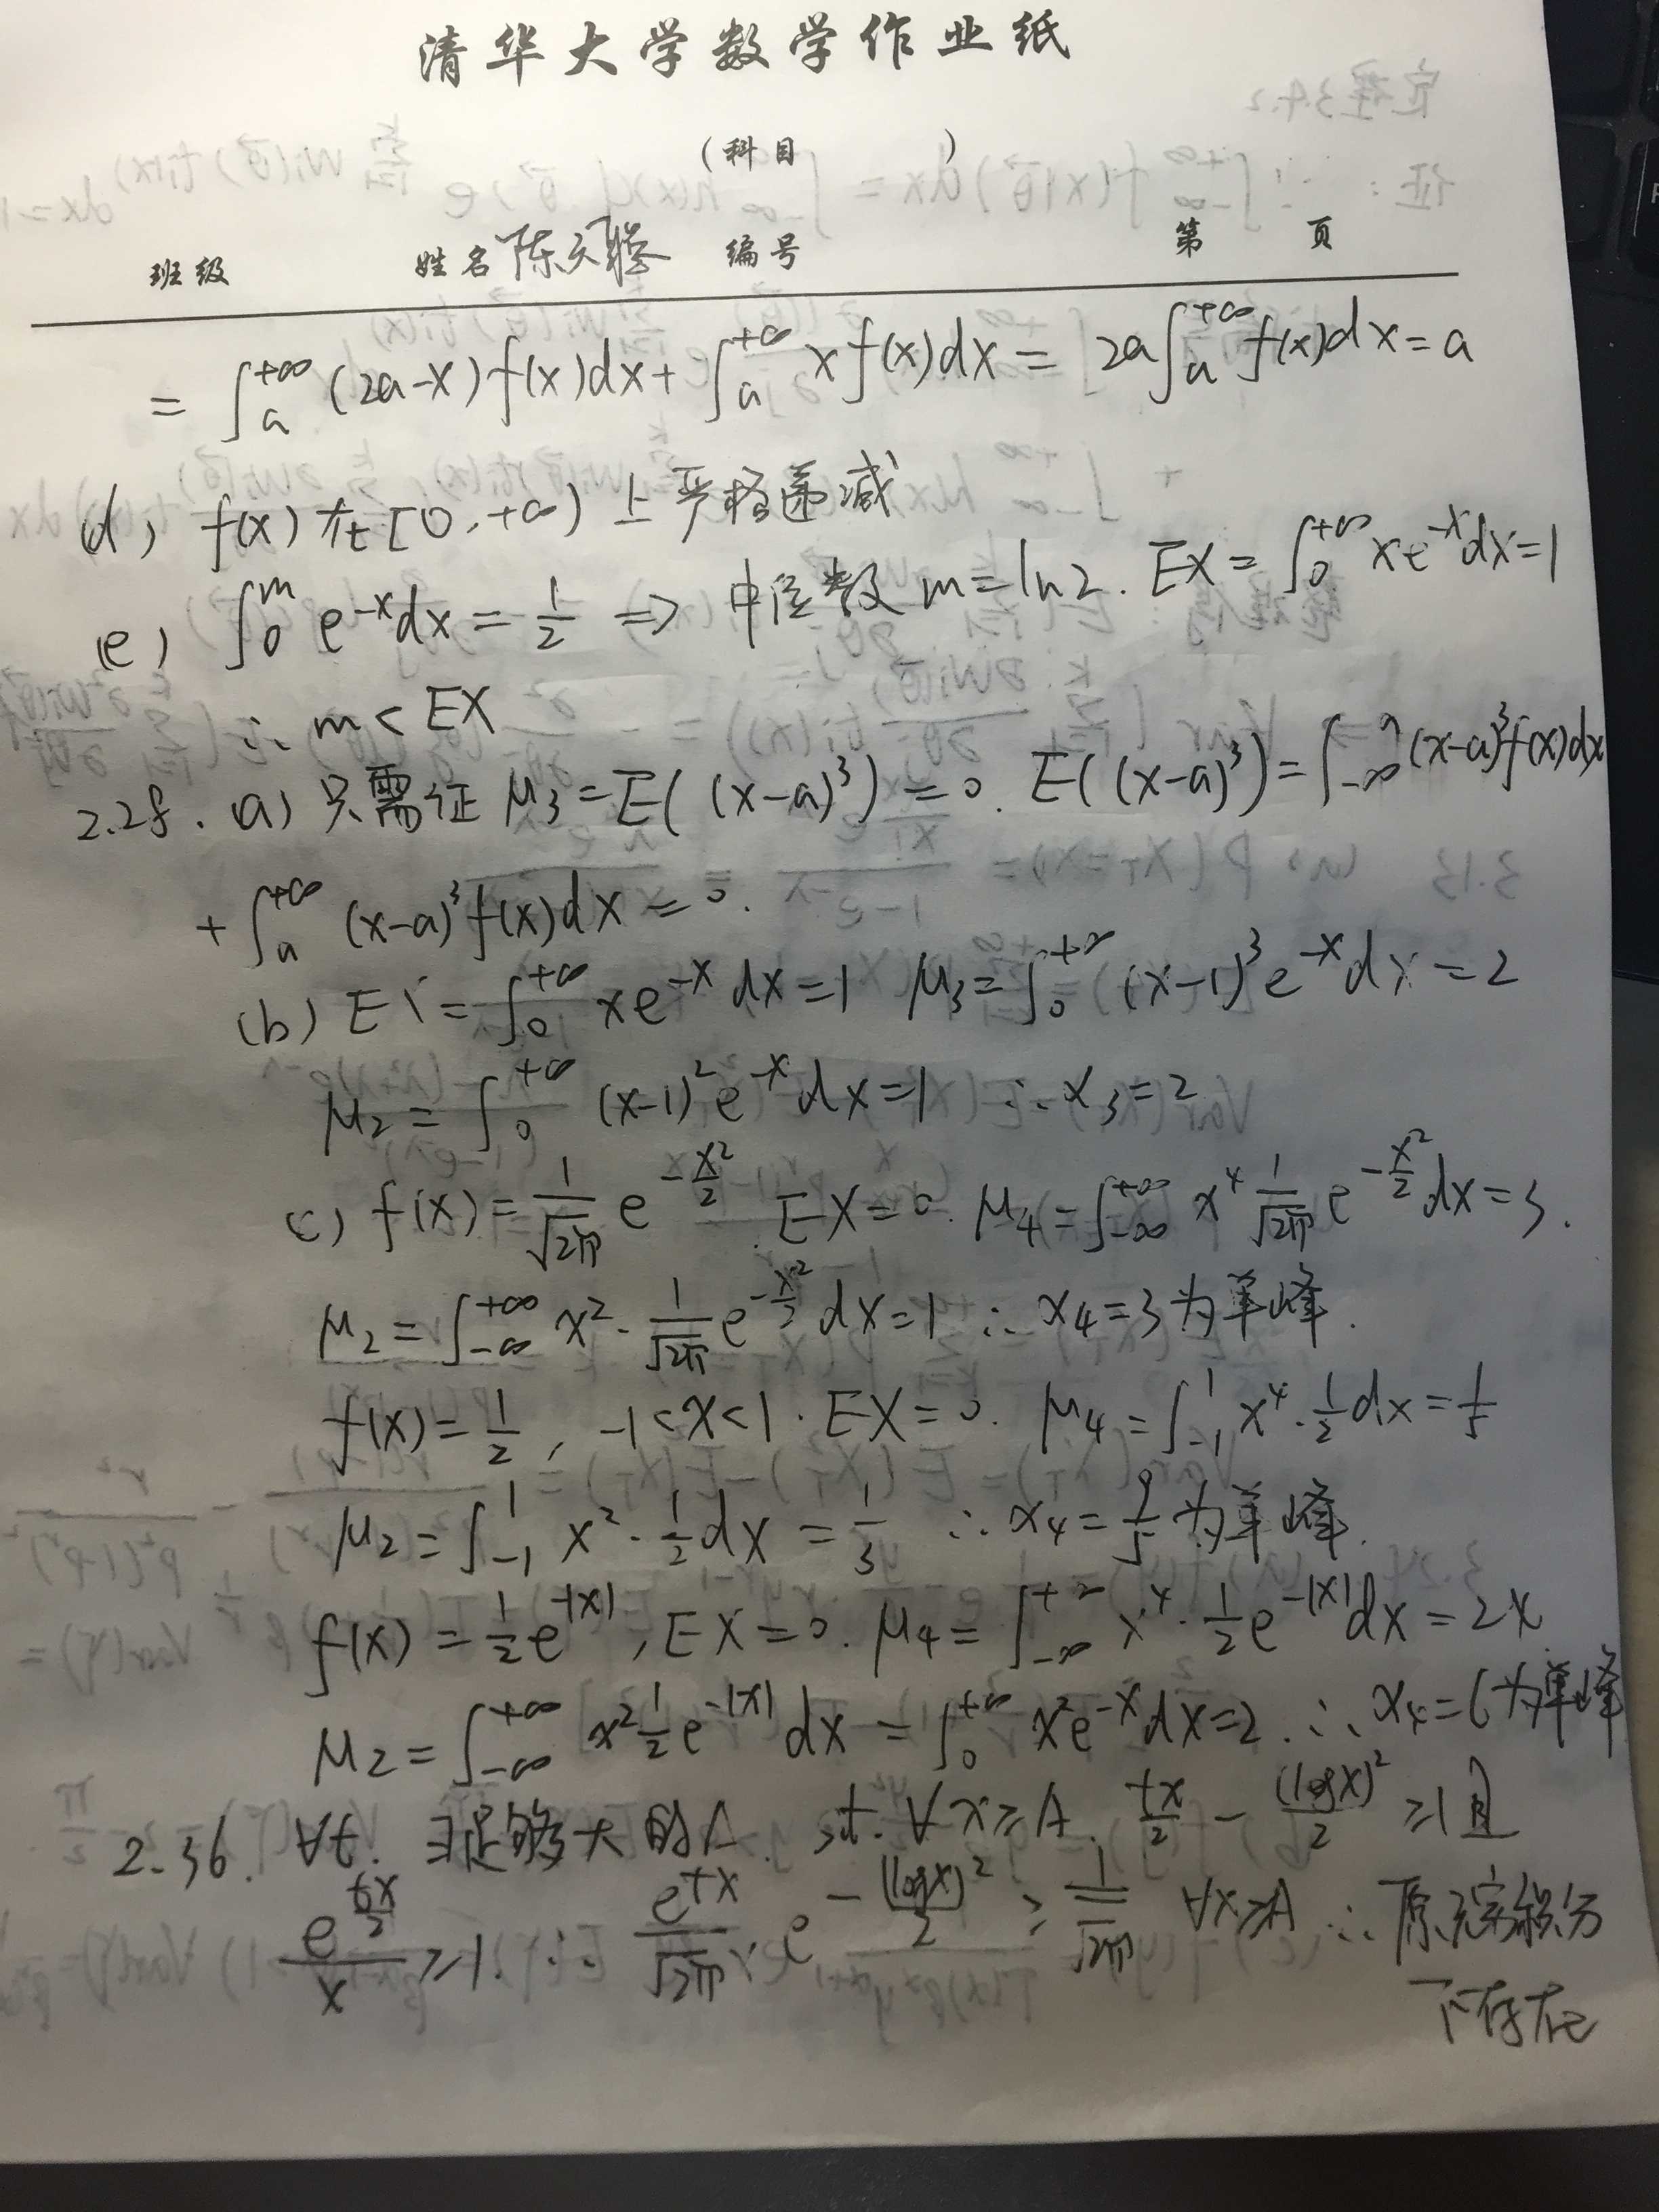 清华大学数学作业纸
(科目 )
班级 姓名 编号 第 页
= ∫_a^{+∞} (2a-x) f(x)dx + ∫_a^{+∞} x f(x)dx = 2a∫_a^{+∞} f(x)dx = a
(d) f(x) 在 [0,+∞) 上严格递减
(e) ∫_0^m e^{-x}dx = 1/2 ⇒ 中位数 m = ln2. EX = ∫_0^{+∞} xe^{-x}dx = 1
∴ m < EX
2.28. (a) 只需证 μ_3 = E((x-a)^3) = 0. E((x-a)^3) = ∫_{-∞}^a (x-a)^3 f(x)dx
+ ∫_a^{+∞} (x-a)^3 f(x)dx = 0.
(b) EX = ∫_0^{+∞} xe^{-x} dx = 1 μ_3 = ∫_0^{+∞} (x-1)^3 e^{-x}dx = 2
μ_2 = ∫_0^{+∞} (x-1)^2 e^{-x}dx = 1 ∴ α_3 = 2
(c) f(x) = 1/√2π e^{-x²/2} . EX = 0. μ_4 = ∫_{-∞}^{+∞} x^4 1/√2π e^{-x²/2}dx = 3.
μ_2 = ∫_{-∞}^{+∞} x^2 · 1/√2π e^{-x²/2} dx = 1 ∴ α_4 = 3 为单峰.
f(x) = 1/2, -1<x<1. EX = 0. μ_4 = ∫_{-1}^1 x^4 · 1/2 dx = 1/5
μ_2 = ∫_{-1}^1 x^2 · 1/2 dx = 1/3 ∴ α_4 = 9/5 为单峰.
f(x) = 1/2 e^{-|x|}, EX = 0. μ_4 = ∫_{-∞}^{+∞} x^4 · 1/2 e^{-|x|}dx = 24
μ_2 = ∫_{-∞}^{+∞} x^2 1/2 e^{-|x|} dx = ∫_0^{+∞} x^2 e^{-x}dx = 2. ∴ α_4 = 6 为单峰
2.36. ∀t. ∃足够大的A. st. ∀x≥A. tx/2 - (logx)²/2 ≥ 1 且
e^{tx/2}/x ≥ 1. ∴ e^{tx}/√2π x e^{-(logx)²/2} ≥ 1/√2π ∀x≥A ∴ 原积分
不存在